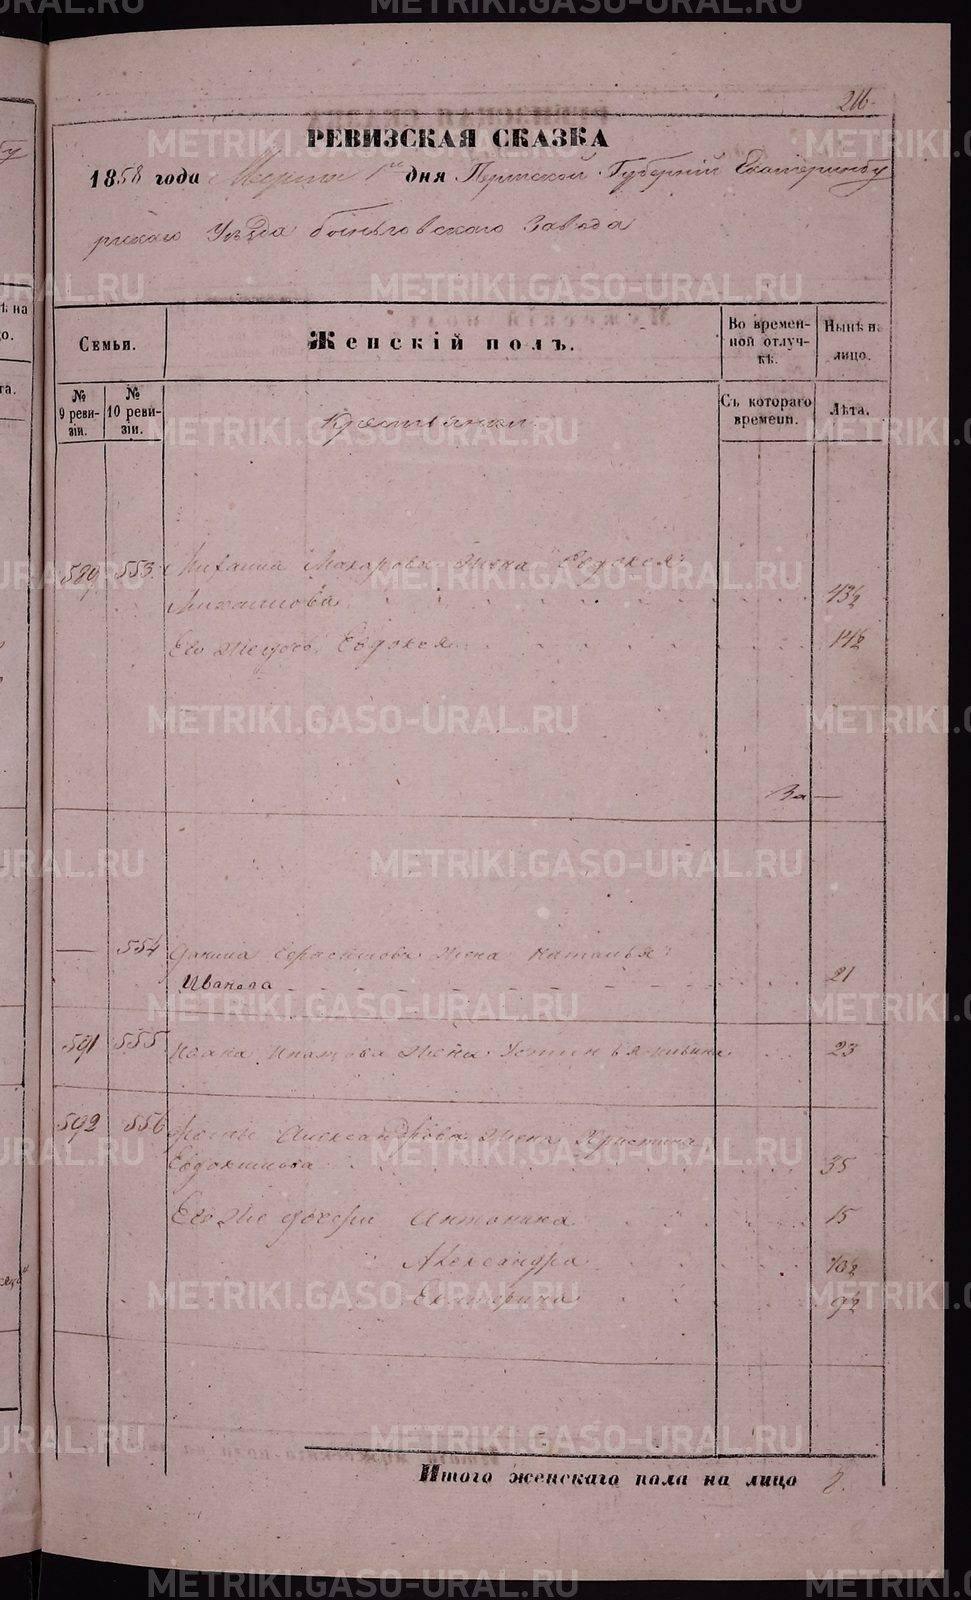 216.
РЕВИЗСКАЯ СКАЗКА
1858 года Марта 1го дня Пермской Губерніи Екатеринбу
ргскаго Уѣзда Заводa
Семьи.
Женскій полъ.
Во времен-
ной отлуч-
кѣ.
Нынѣ на
лицо.
№
9 реви-
зіи.
№
10 реви-
зіи.
Съ котораго
времени.
Лѣта.
589. 553. Михаила Макарова жена Евдокея
Михаилова 43½
Его же дочь Евдокея 14½
— 554 Данила жена Наталья
Иванова 21
591 555 Ивана жена 23
592 556 Александрова жена Христина
Евдокимова 35
Его же дочери Антонина 15
Александра 13½
Екатерина 9½
Итого женскаго пола на лицо 8.
METRIKI.GASO-URAL.RU